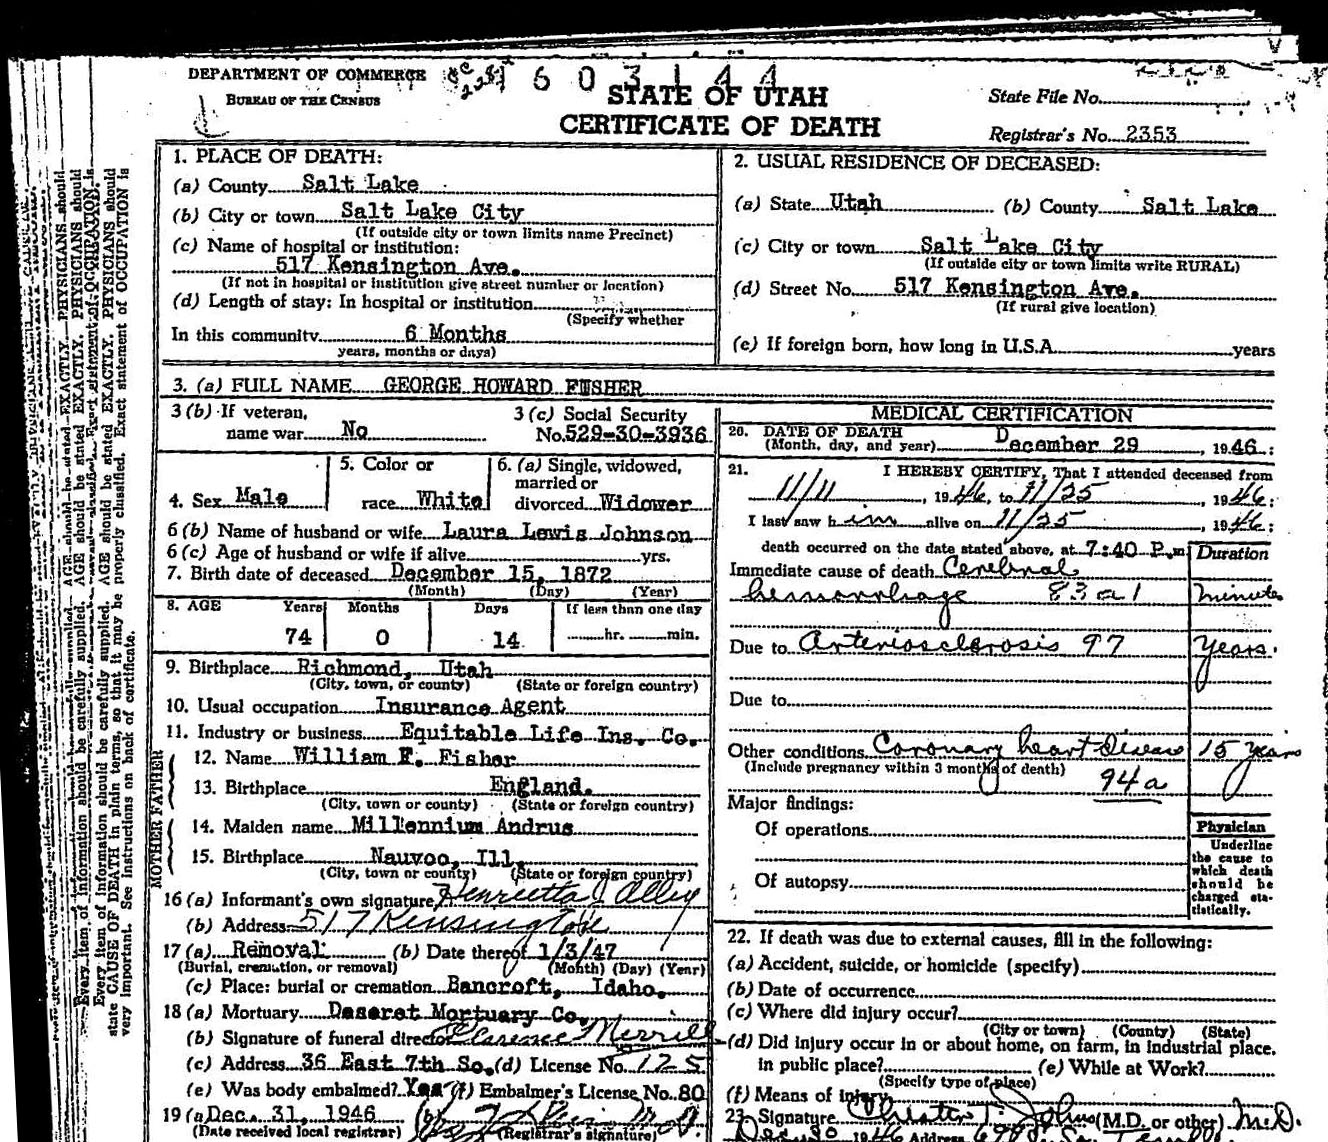 DEPARTMENT OF COMMERCE
BUREAU OF THE CENSUS
603144
STATE OF UTAH
CERTIFICATE OF DEATH
State File No.
Registrar's No. 2353
1. PLACE OF DEATH:
(a) County Salt Lake
(b) City or town Salt Lake City
(If outside city or town limits name Precinct)
(c) Name of hospital or institution:
517 Kensington Ave.
(If not in hospital or institution give street number or location)
(d) Length of stay: In hospital or institution
(Specify whether
In this community 6 Months
years, months or days)
2. USUAL RESIDENCE OF DECEASED:
(a) State Utah (b) County Salt Lake
(c) City or town Salt Lake City
(If outside city or town limits write RURAL)
(d) Street No. 517 Kensington Ave.
(If rural give location)
(e) If foreign born, how long in U.S.A. years
3. (a) FULL NAME GEORGE HOWARD FISHER
3 (b) If veteran,
name war No
3 (c) Social Security
No. 529-30-3936
4. Sex Male
5. Color or
race White
6. (a) Single, widowed,
married or
divorced Widower
6 (b) Name of husband or wife Laura Lewis Johnson
6 (c) Age of husband or wife if alive yrs.
7. Birth date of deceased December 15, 1872
(Month) (Day) (Year)
8. AGE Years Months Days If less than one day
74 0 14 hr. min.
9. Birthplace Richmond, Utah
(City, town, or county) (State or foreign country)
10. Usual occupation Insurance Agent
11. Industry or business Equitable Life Ins. Co.
FATHER
12. Name William F. Fisher
13. Birthplace England.
(City, town or county) (State or foreign country)
MOTHER
14. Maiden name Millennium Andrus
15. Birthplace Nauvoo, Ill.
(City, town or county) (State or foreign country)
16 (a) Informant's own signature Henrietta J Alley
(b) Address 517 Kensington
17 (a) Removal (b) Date thereof 1/3/47
(Burial, cremation, or removal) (Month) (Day) (Year)
(c) Place: burial or cremation Bancroft, Idaho.
18 (a) Mortuary Deseret Mortuary Co.
(b) Signature of funeral director Clarence Merrill
(c) Address 36 East 7th So. (d) License No. 125
(e) Was body embalmed? Yes (f) Embalmer's License No. 80
19 (a Dec. 31, 1946 (b)
(Date received local registrar) (Registrar's signature)
MEDICAL CERTIFICATION
20. DATE OF DEATH
(Month, day, and year) December 29, 1946:
21. I HEREBY CERTIFY, That I attended deceased from
11/11, 1946, to 11/25, 1946:
I last saw him alive on 11/25, 1946:
death occurred on the date stated above, at 7:40 P.m Duration
Immediate cause of death Cerebral
hemorrhage 83a1 minutes
Due to Arteriosclerosis 97 Years.
Due to
Other conditions Coronary heart Disease 15 years
(Include pregnancy within 3 months of death) 94a
Major findings:
Of operations
Of autopsy
Physician
Underline
the cause to
which death
should be
charged sta-
tistically.
22. If death was due to external causes, fill in the following:
(a) Accident, suicide, or homicide (specify)
(b) Date of occurrence
(c) Where did injury occur?
(City or town) (County) (State)
(d) Did injury occur in or about home, on farm, in industrial place,
in public place? (e) While at Work?
(Specify type of place)
(f) Means of injury
23. Signature (M.D. or other) M.D.
1946 Address
Every item of information should be carefully supplied. AGE should be stated EXACTLY. PHYSICIANS should
state CAUSE OF DEATH in plain terms, so that it may be properly classified. Exact statement of OCCUPATION is
very important. See instructions on back of certificate.